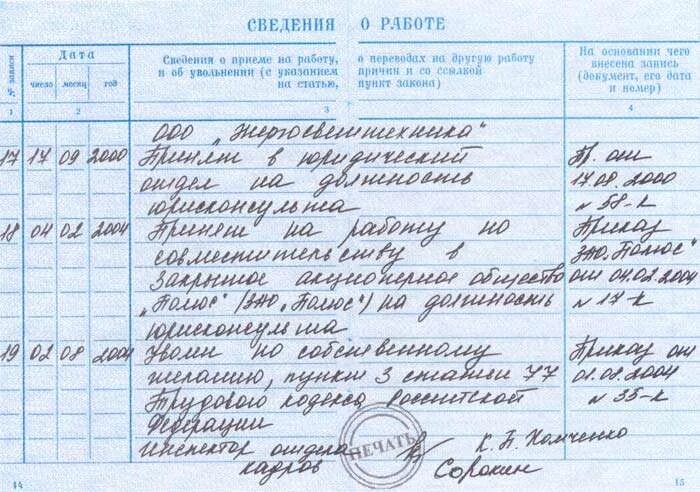 СВЕДЕНИЯ О РАБОТЕ
№ записи
Дата
число месяц год
Сведения о приеме на работу, о переводах на другую работу
и об увольнении (с указанием причин и со ссылкой
на статью, пункт закона)
На основании чего
внесена запись
(документ, его дата
и номер)
1 2 3 4
ООО „Энергосветтехника"
17 17 09 2000 Принят в юридический Пр. от
отдел на должность 17.08.2000
юрисконсульта N 58-к
18 04 02 2004 Принят на работу по Приказ
совместительству в ЗАО „Полюс"
Закрытое акционерное общество от 04.02.2004
„Полюс" (ЗАО „Полюс") на должность N 17-к
юрисконсульта
19 02 08 2004 Уволен по собственному Приказ от
желанию, пункт 3 статьи 77 01.08.2004
Трудового кодекса Российской N 35-к
Федерации
Инспектор отдела К. П. Хомченко
кадров Сорокин
ПЕЧАТЬ
14 15